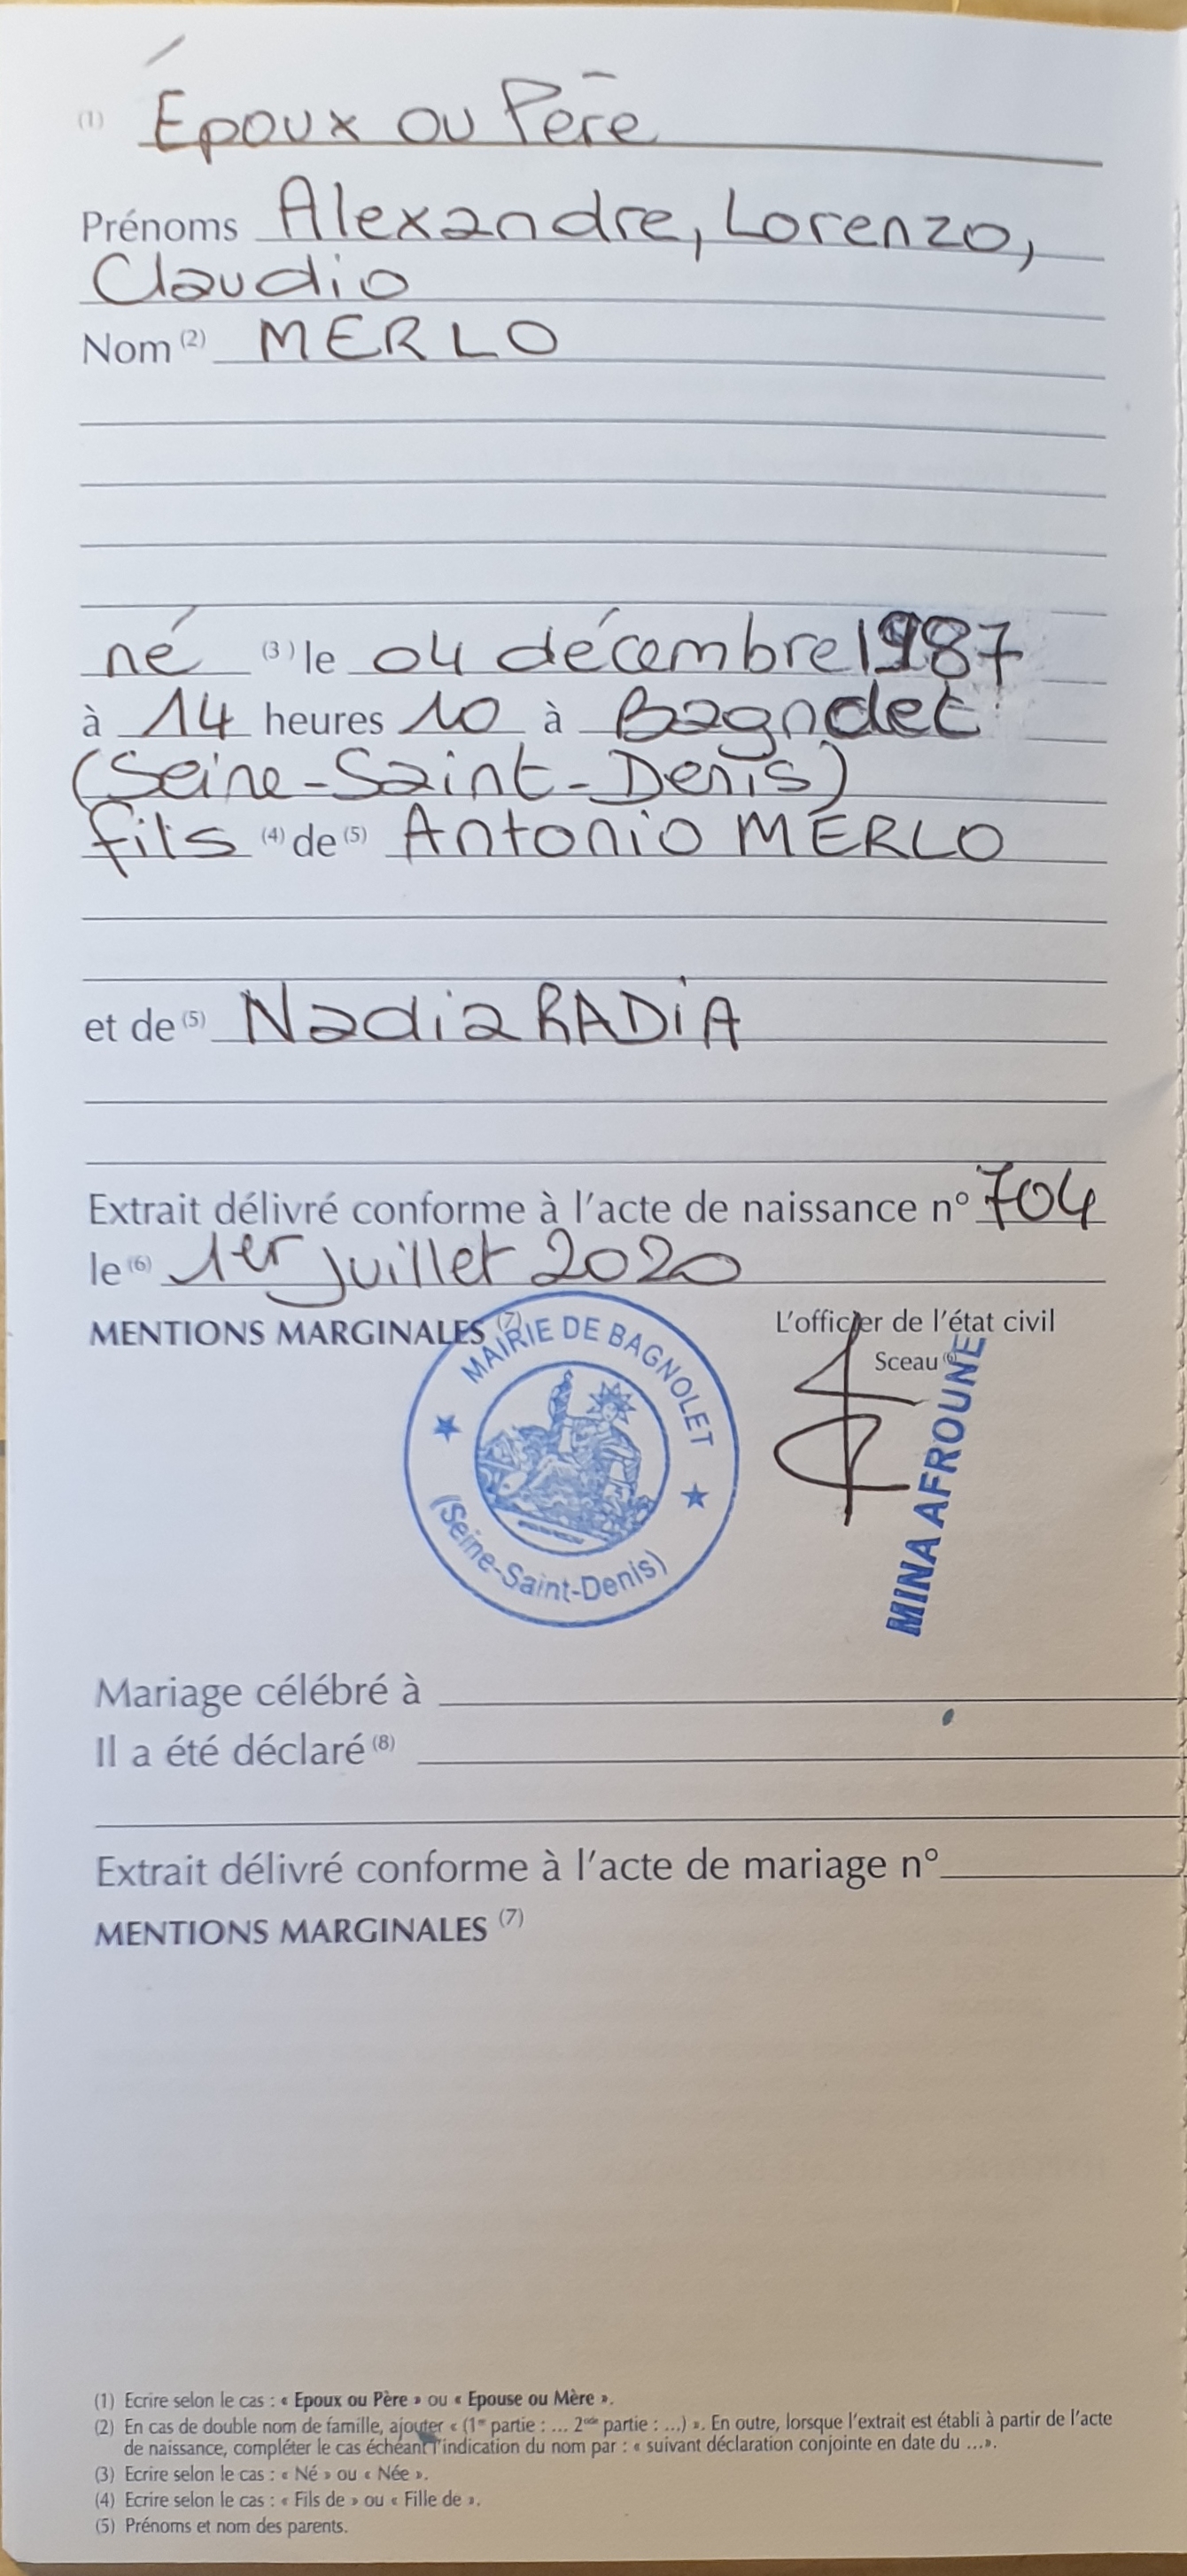 (1) Époux ou Père
Prénoms Alexandre, Lorenzo,
Claudio
Nom (2) MERLO
né (3) le 04 décembre 1987
à 14 heures 10 à Bagnolet
(Seine-Saint-Denis)
fils (4) de (5) Antonio MERLO
et de (5) Nadia RADIA
Extrait délivré conforme à l'acte de naissance n° 704
le (6) 1er juillet 2020
MENTIONS MARGINALES (7)
L'officier de l'état civil
Sceau (6)
MAIRIE DE BAGNOLET
(Seine-Saint-Denis)
MINA AFROUNE
Mariage célébré à
Il a été déclaré (8)
Extrait délivré conforme à l'acte de mariage n°
MENTIONS MARGINALES (7)
(1) Ecrire selon le cas : « Epoux ou Père » ou « Epouse ou Mère ».
(2) En cas de double nom de famille, ajouter « (1re partie : ... 2nde partie : ...) ». En outre, lorsque l'extrait est établi à partir de l'acte
de naissance, compléter le cas échéant l'indication du nom par : « suivant déclaration conjointe en date du ...».
(3) Ecrire selon le cas : « Né » ou « Née ».
(4) Ecrire selon le cas : « Fils de » ou « Fille de ».
(5) Prénoms et nom des parents.